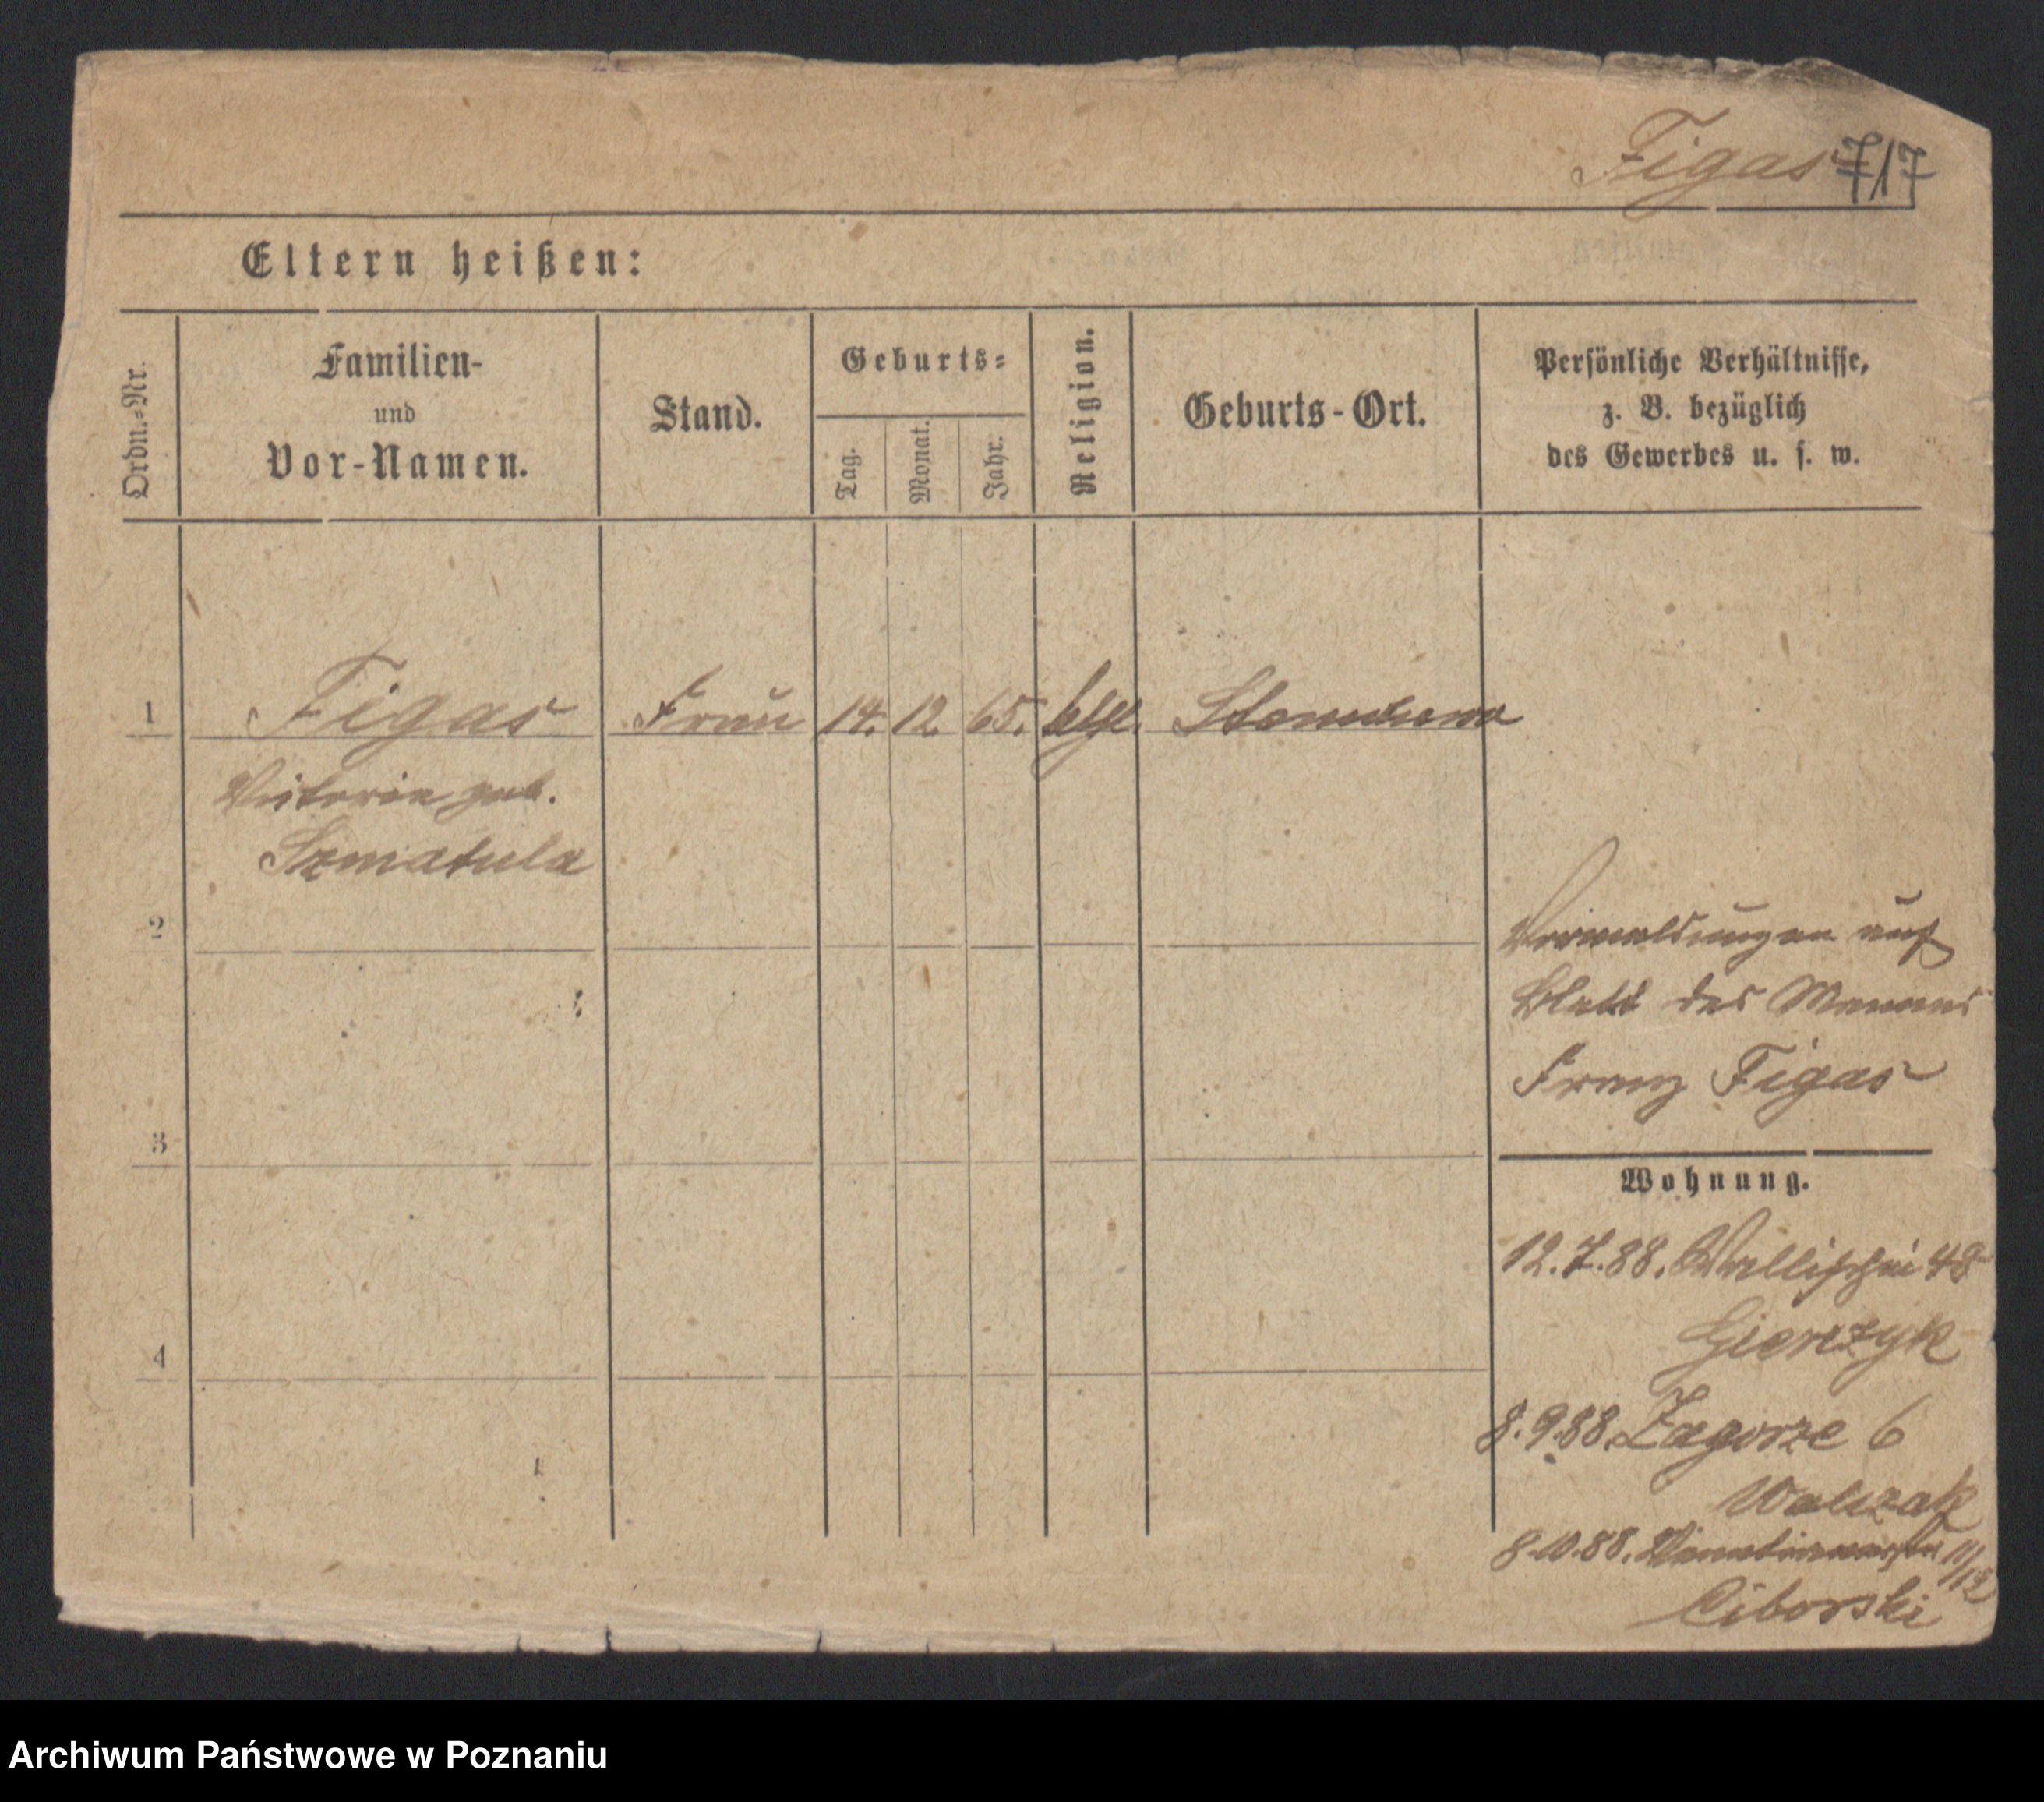 Figas 717
Eltern heißen:
Ordn.-Nr.
Familien-
und
Vor-Namen.
Stand.
Geburts-
Tag.
Monat.
Jahr.
Religion.
Geburts-Ort.
Persönliche Verhältnisse,
z. B. bezüglich
des Gewerbes u. s. w.
1 Figas Frau 14. 12. 65. kthl.
Victoria geb.
Szmatula
2
3
4
Vermeldungen auf
Blatt des Mannes
Franz Figas
Wohnung.
12.7.88. Wallischei 48
Gierczyk
8.9.88. Zagorze 6
Walczak
8.10.88. 11/12
Ciborski
Archiwum Państwowe w Poznaniu